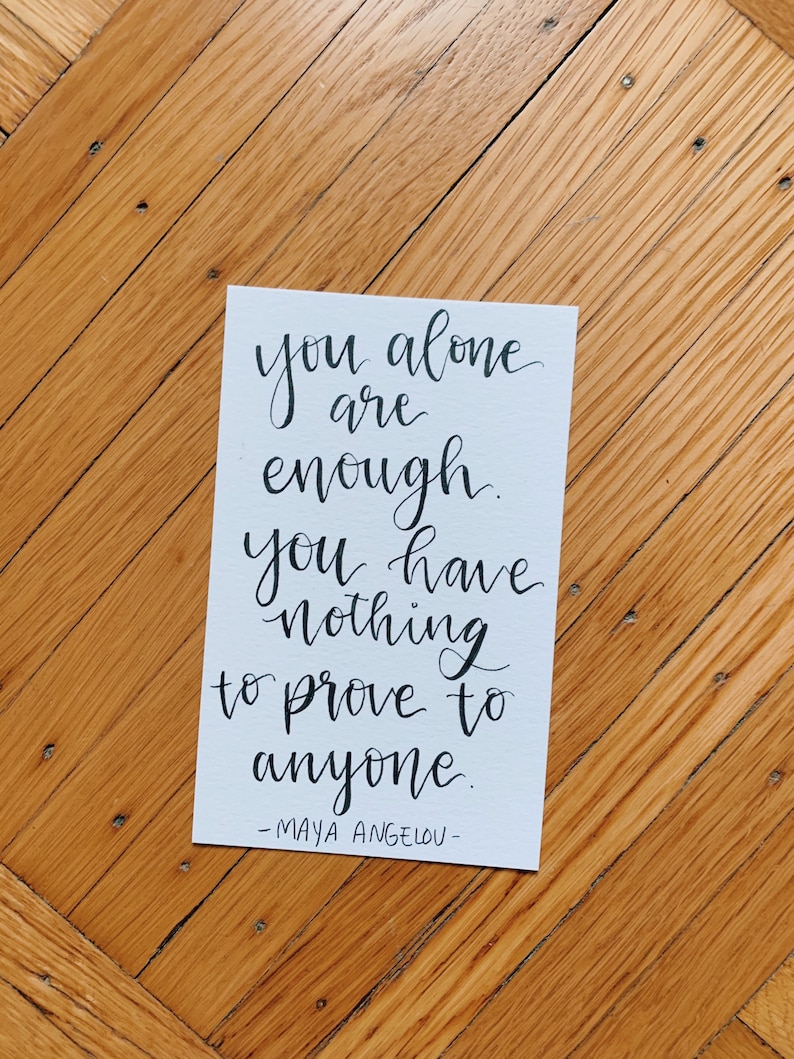 you alone
are
enough.
you have
nothing
to prove to
anyone.
-MAYA ANGELOU-